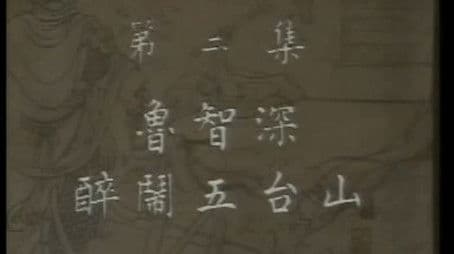 第二集
魯智深
醉鬧五台山